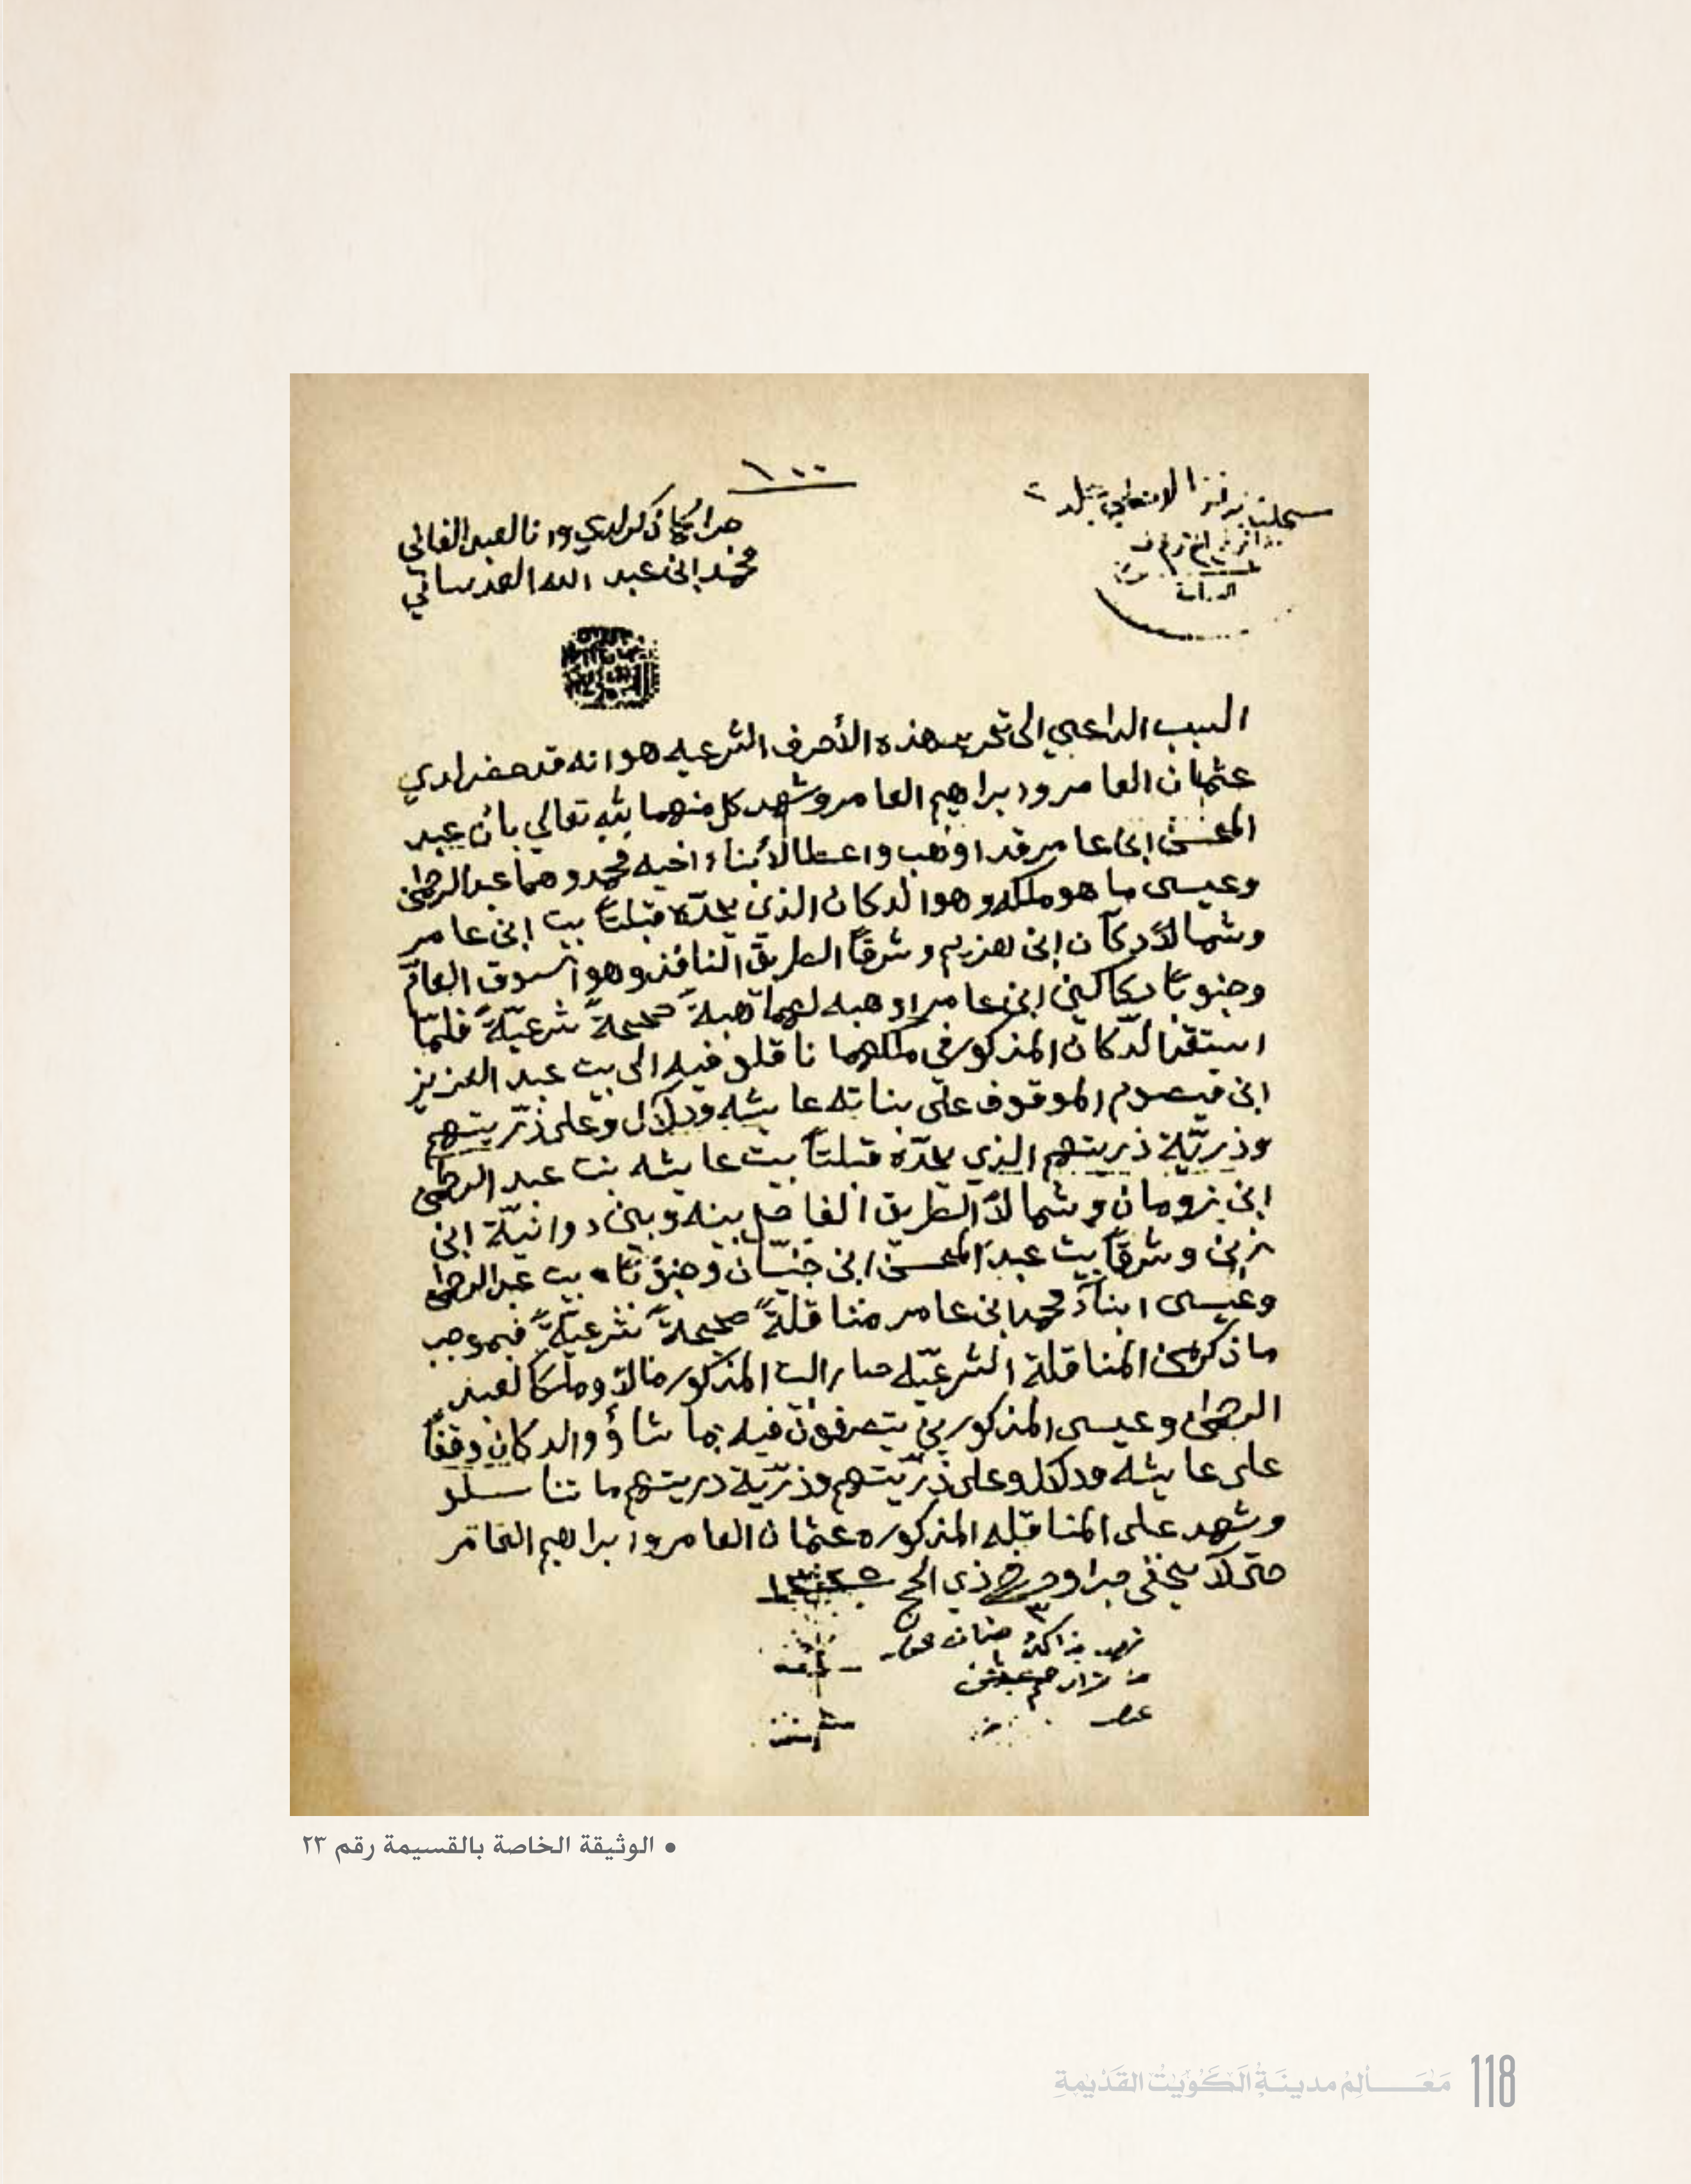 ١٠٠
جرا كما ذكر لدي وانا العبد الفاني
محمد ابن عبد الله العدساني
السبب الداعي الى تحرير هذه الأحرف الشرعيه هو انه قد حضر لدي
عثمان العامر وابراهيم العامر وشهد كل منهما لله تعالى بأن عبد
المحسن ابن عامر قد اوهب واعطا لأبناء اخيه محمد وهما عبد الرحمن
وعيسى ما هو ملكه وهو الدكان الذي يحدّه قبلتاً بيت ابن عامر
وشمالاً دكان ابن هزيم وشرقاً الطريق النافذ وهو السوق العام
وجنوباً دكاكين ابن عامر اوهبه لهما هبةً صحيحةً شرعيّةً فلمّا
استقر الدّكان المذكور في ملكهما ناقلو فيه الى بيت عبد العزيز
ابن قيصوم الموقوف على بناته عايشه ودلال وعلى ذرّيتهم
وذريّة ذريتهم الذي يحدّه قبلتاً بيت عايشه بنت عبد الرحمن
ابن رومان وشمالاً الطريق الفاصل بينه وبين دوانيّة ابن
زبن وشرقاً بيت عبد المحسن ابن خنيّان وجنوباً بيت عبد الرحمن
وعيسى ابناء محمد ابن عامر مناقلةً صحيحةً شرعيّةً فبموجب
ما ذكر من المناقلة الشرعيّه صار البيت المذكور مالاً وملكاً لعبد
الرحمن وعيسى المذكورين يتصرفون فيه بما شاؤو والدكان وقفاً
على عايشه ودلال وعلى ذرّيتهم وذرّية ذريتهم ما تناسلو
وشهد على المناقله المذكوره عثمان العامر وابراهيم العامر
حتى لا يخفى جرا وحرر في ذي الحج ١٣٢٥
• الوثيقة الخاصة بالقسيمة رقم ٢٣
مَعَالِمُ مدينَةِ الكُوَيْت القَدِيمَةِ 118